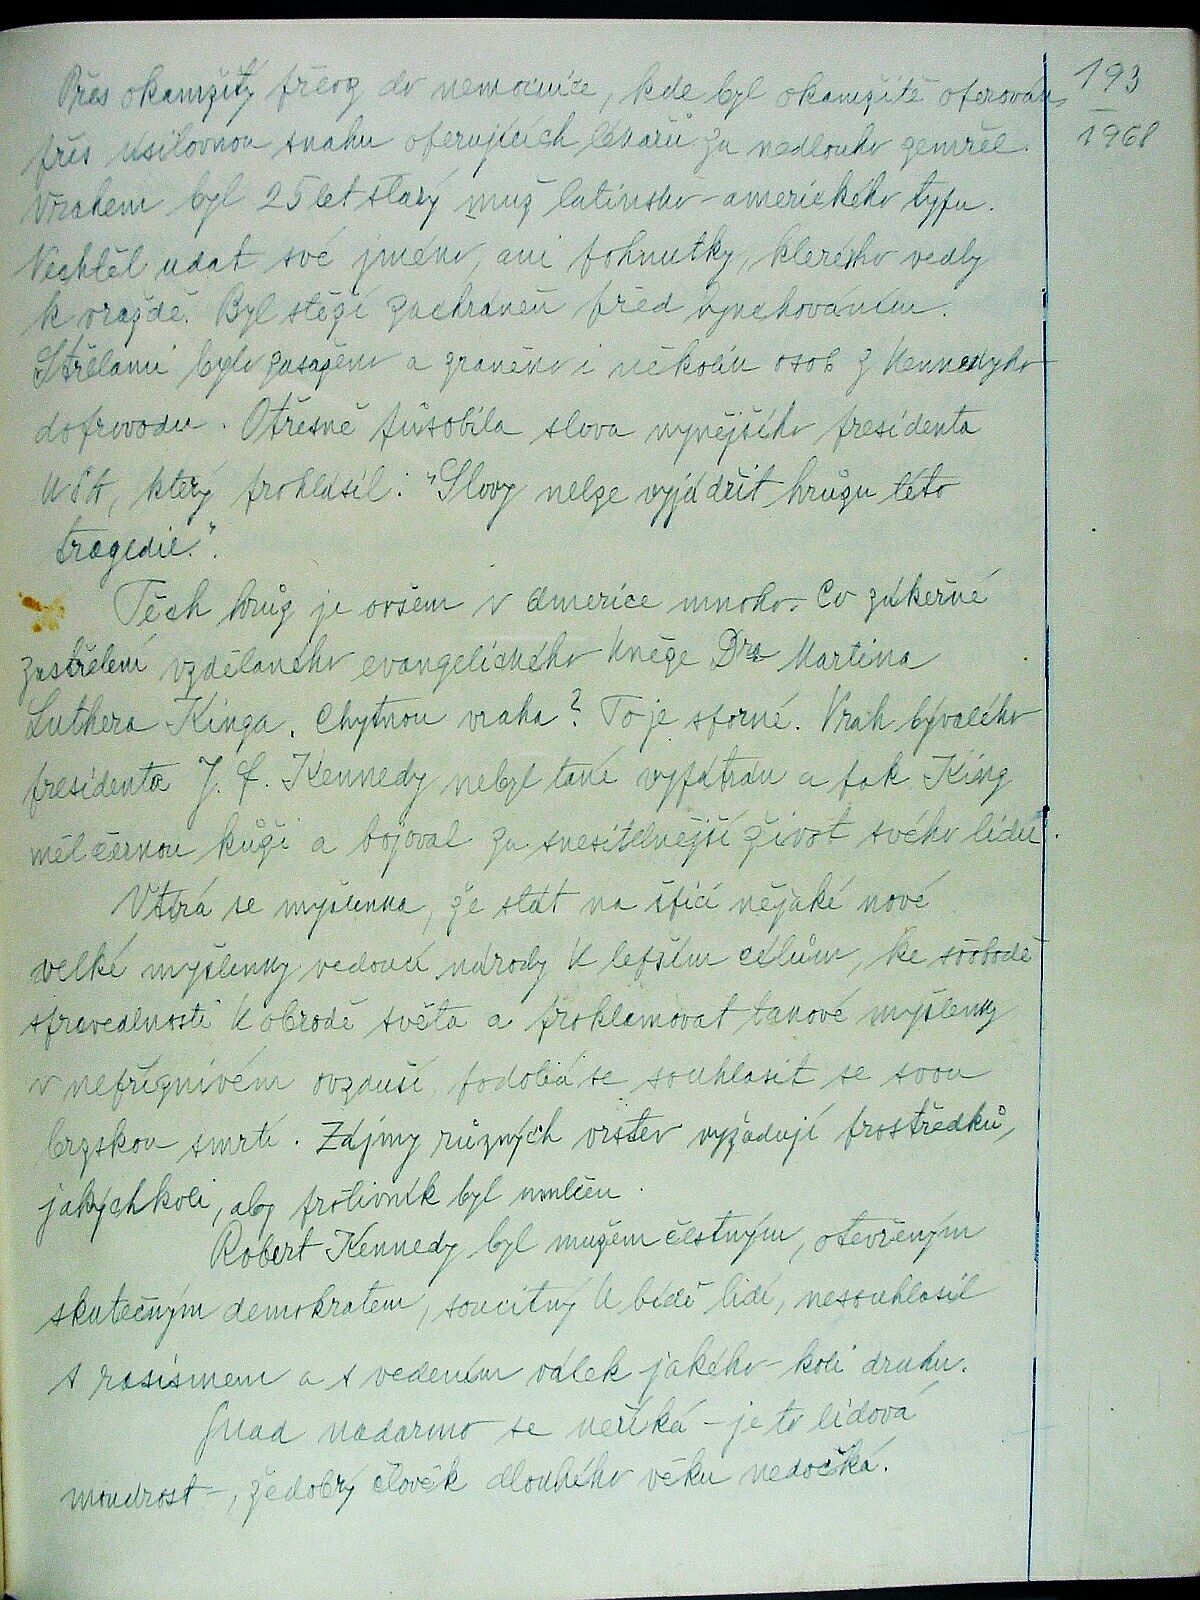 Přes okamžitý převoz do nemocnice, kde byl okamžitě operován,
přes úsilovnou snahu operujících lékařů za nedlouho zemřel.
Vrahem byl 25 let starý muž latinsko-amerického typu.
Nechtěl udat své jméno, ani pohnutky, které ho vedly
k vraždě. Byl stěží zachráněn před lynchováním.
Střelami bylo zasaženo a zraněno i několik osob z Kennedyho
doprovodu. Otřesně působila slova nynějšího presidenta
USA, který prohlásil: "Slovy nelze vyjádřit hrůzu této
tragedie.".
Těch hrůz je ovšem v Americe mnoho. Co zákeřné
zastřelení vzdělaného evangelického kněze Dra Martina
Luthera Kinga. Chytnou vraha? To je sporné. Vrah bývalého
presidenta J. F. Kennedy nebyl také vypátrán a pak King
měl černou kůži a bojoval za snesitelnější život svého lidu.
Vtírá se myšlenka, že stát na špici nějaké nové
velké myšlenky vedoucí národy k lepším cílům, ke svobodě
spravedlnosti k obrodě světa a proklamovat takové myšlenky
v nepříznivém ovzduší, podobá se souhlasit se svou
brzskou smrtí. Zájmy různých vrstev vyžadují prostředků,
jakýchkoli, aby protivník byl umlčen.
Robert Kennedy byl mužem čestným, otevřeným
skutečným demokratem, soucitný k bídě lidí, nesouhlasil
s rasismem a s vedením válek jakého-koli druhu.
Snad nadarmo se neříká - je to lidová
moudrost -, že dobrý člověk dlouhého věku nedočká.
193
1968